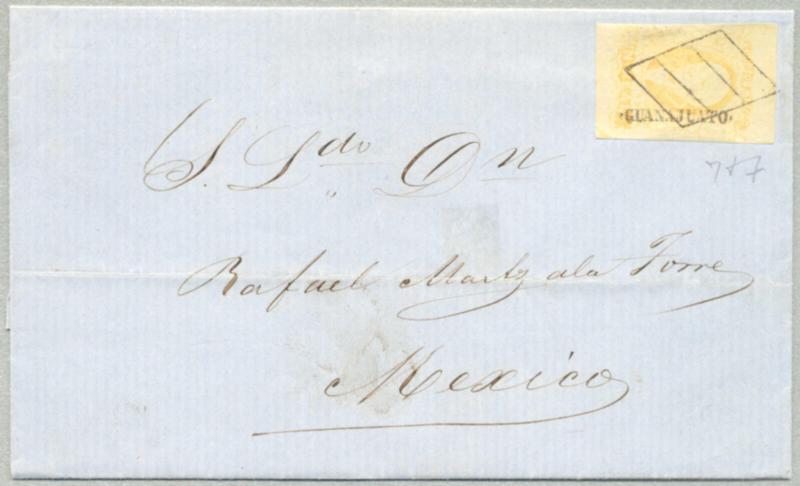 GUANAJUATO
787
S. Ldo Dn
Rafael Martz de la Torre
Mexico